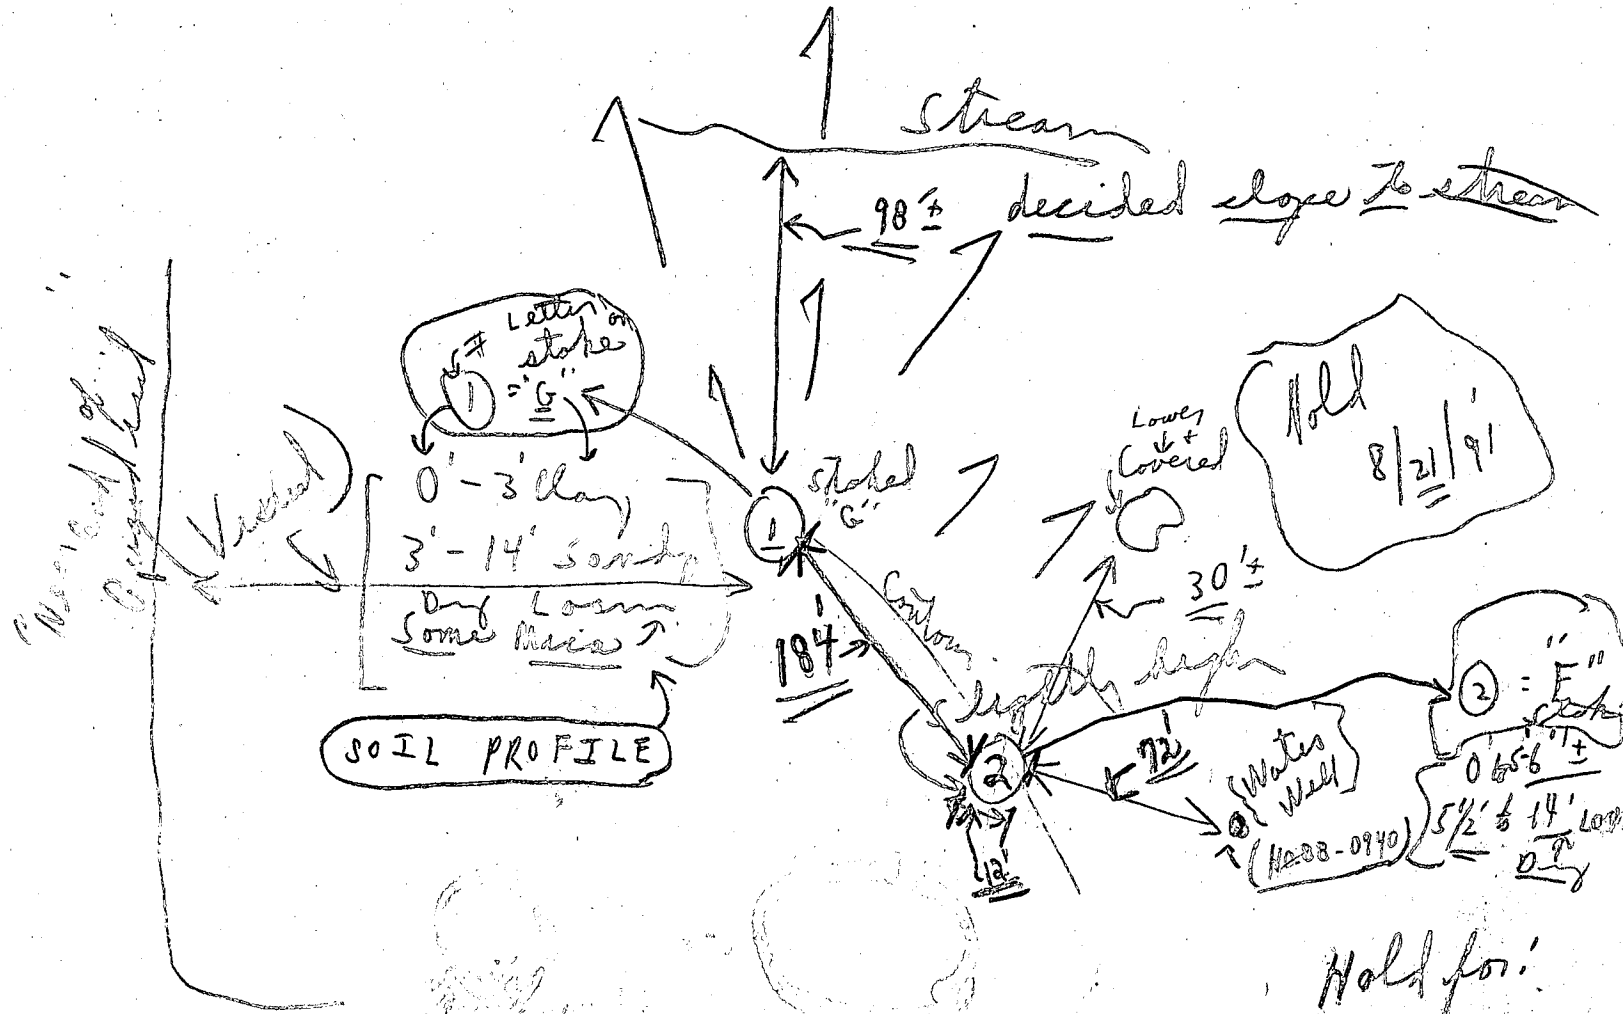 Stream
98'± decided slope to stream
# Letter on
stake
① = "G"
0' - 3' Clay
3' - 14' Sandy
Dry Loam
Some Mica ↑
SOIL PROFILE
① Staked
"G"
Lower
+
Covered
Hold
8/21/91
30'±
Contour
184'
slightly high
②
12'
72'
Water
Well
(HO88-0940)
② = "F"
5 1/2' to 14'
Dry
Hold for: